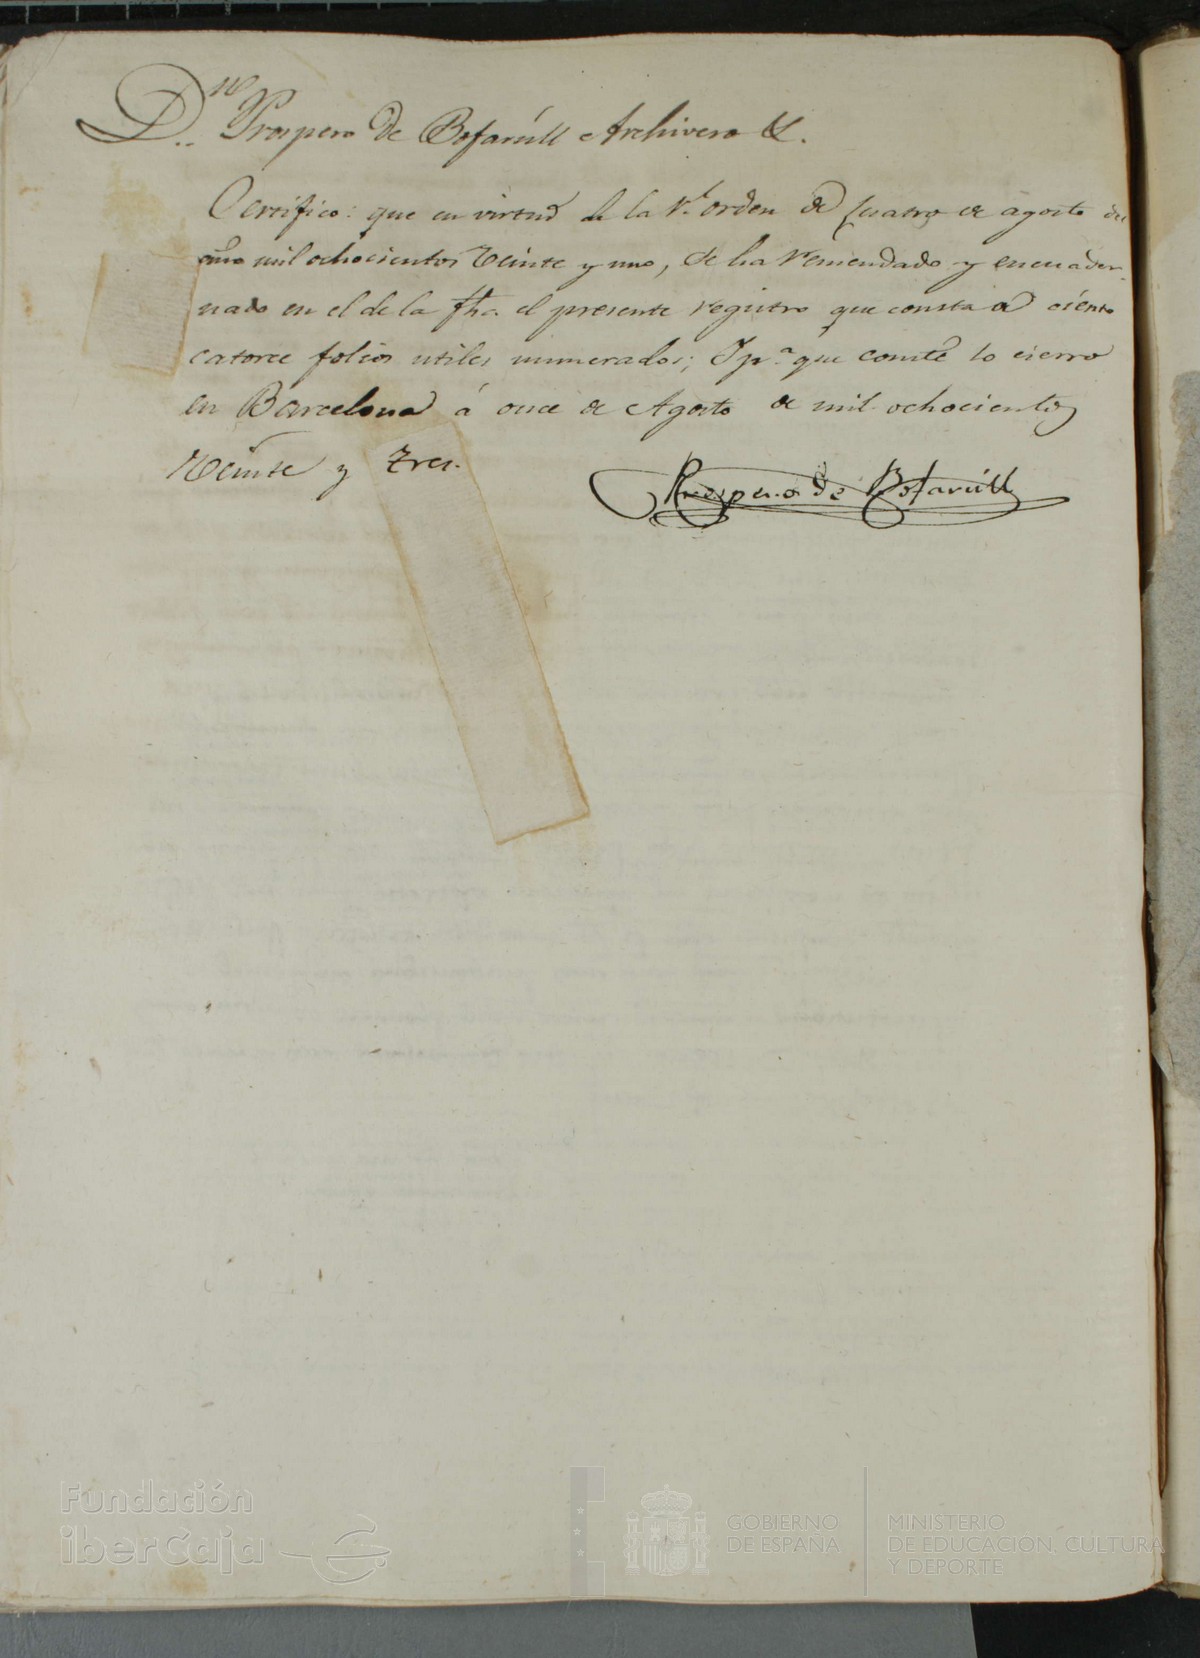 Dn. Prospero de Bofarull Archivero &.
Certifico: que en virtud de la Rl. orden de Cuatro de agosto del
año mil ochocientos Veinte y uno, se ha remendado y encuader-
nado en el de la fha. el presente registro que consta de ciento
catorce folios utiles numerados; Y pa. que conste lo cierro
en Barcelona á once de Agosto de mil ochocientos
Veinte y tres.
Prospero de Bofarull
Fundación
iberCaja
GOBIERNO
DE ESPAÑA
MINISTERIO
DE EDUCACIÓN, CULTURA
Y DEPORTE